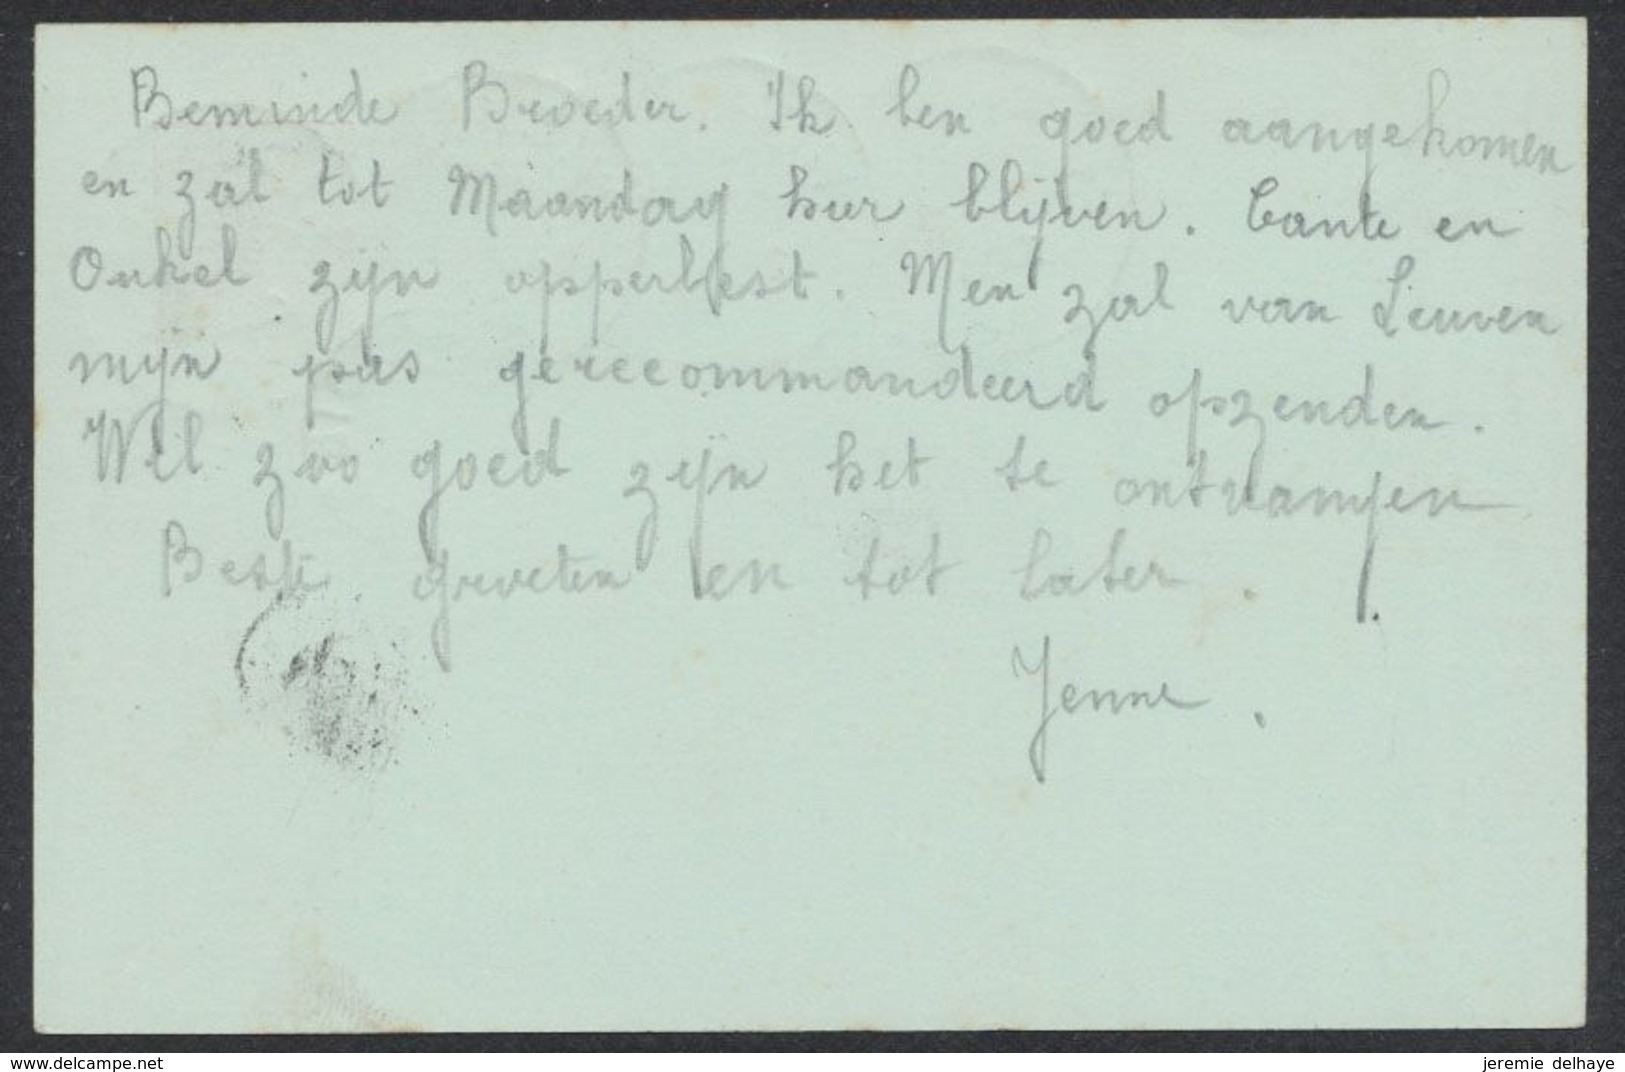 Beminde Broeder. Ik ben goed aangekomen
en zal tot Maandag hier blijven. Tante en
Onkel zijn opperbest. Men zal van Leuven
mijn pas gerecommandeerd opzenden.
Wil zoo goed zijn het te ontvangen.
Beste groeten en tot later.
Jenne.
www.delcampe.net
jeremie delhaye